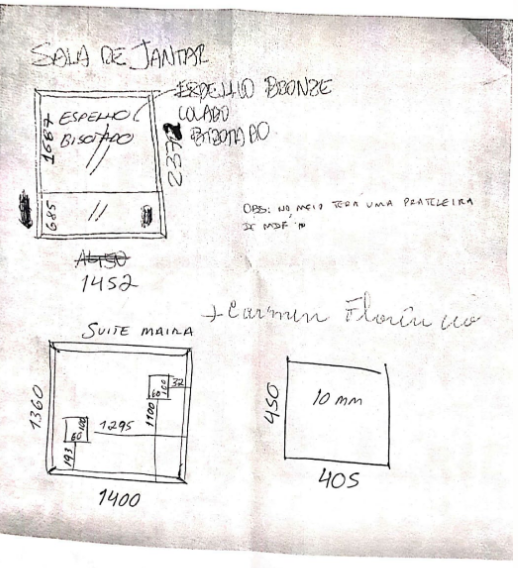 SALA DE JANTAR
ESPELHO BRONZE
COLADO
BISOTADO
ESPELHO
BISOTADO
1687
2372
685
1452
OBS: NO MEIO TERA UMA PRATELEIRA
DE MDF
SUITE MAIRA
1360
32
60 100
1100
1295
60 100
193
1400
10 mm
450
405